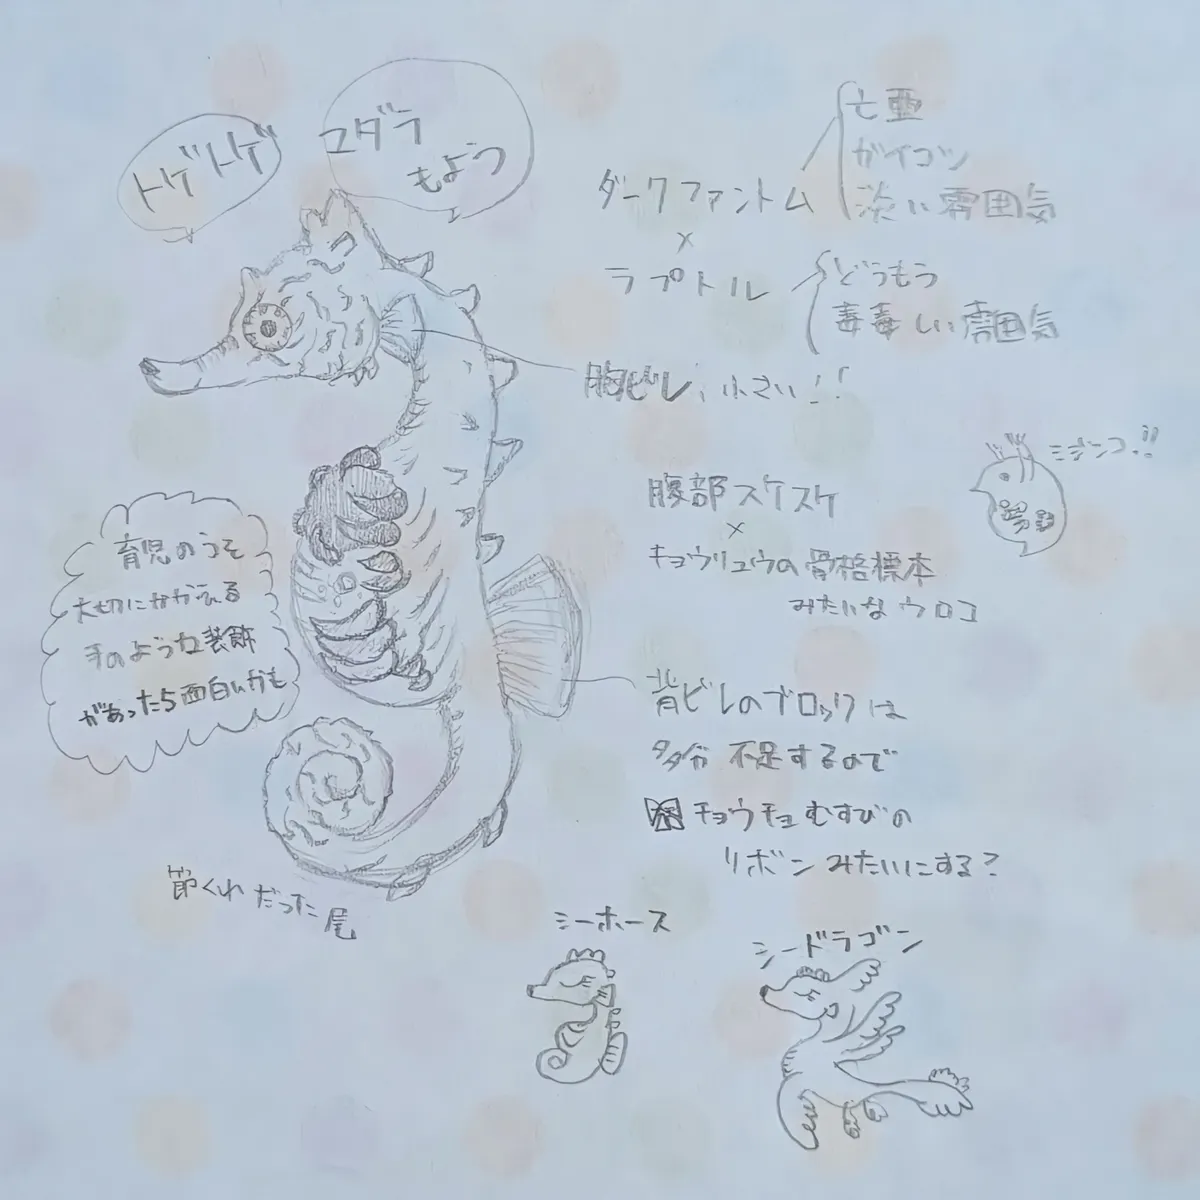 トゲトゲ
マダラ
もよう
ダークファントム
亡霊
ガイコツ
淡い雰囲気
×
ラプトル
どうもう
毒毒しい雰囲気
胸ビレ、小さい!!
ミジンコ!!
腹部スケスケ
×
キョウリュウの骨格標本
みたいなウロコ
育児のうそ
大切にかかえる
手のような装飾
があったら面白いかも
背ビレのブロックは
多分不足するので
チョウチョむすびの
リボンみたいにする?
節くれだった尾
シーホース
シードラゴン